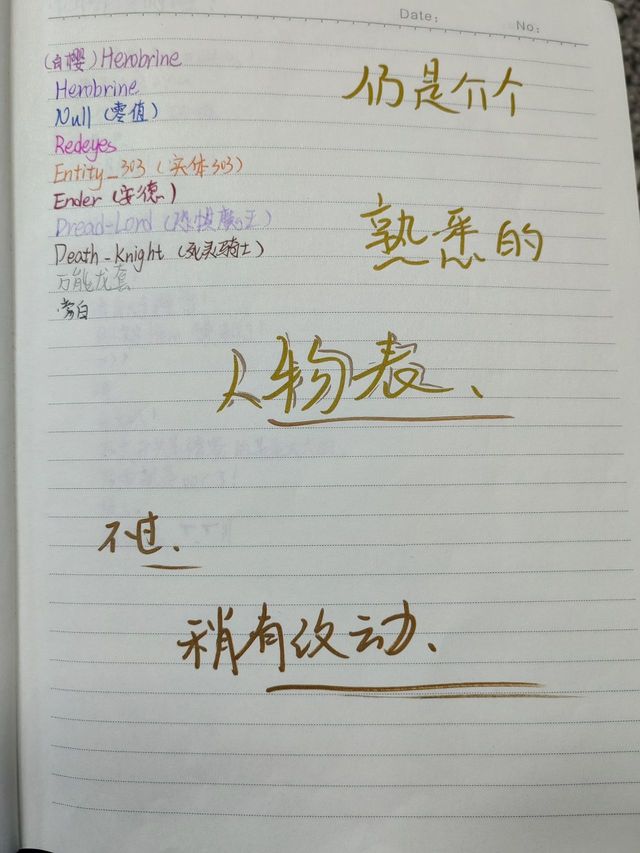 Date: No:
(白樱) Herobrine
Herobrine
Null (零值)
Redeyes
Entity_303 (实体303)
Ender (安德)
Dread-Lord (恐惧魔王)
Death-Knight (死灵骑士)
万能龙套
旁白
仍是介个
熟悉的
人物表、
不过、
稍有改动、